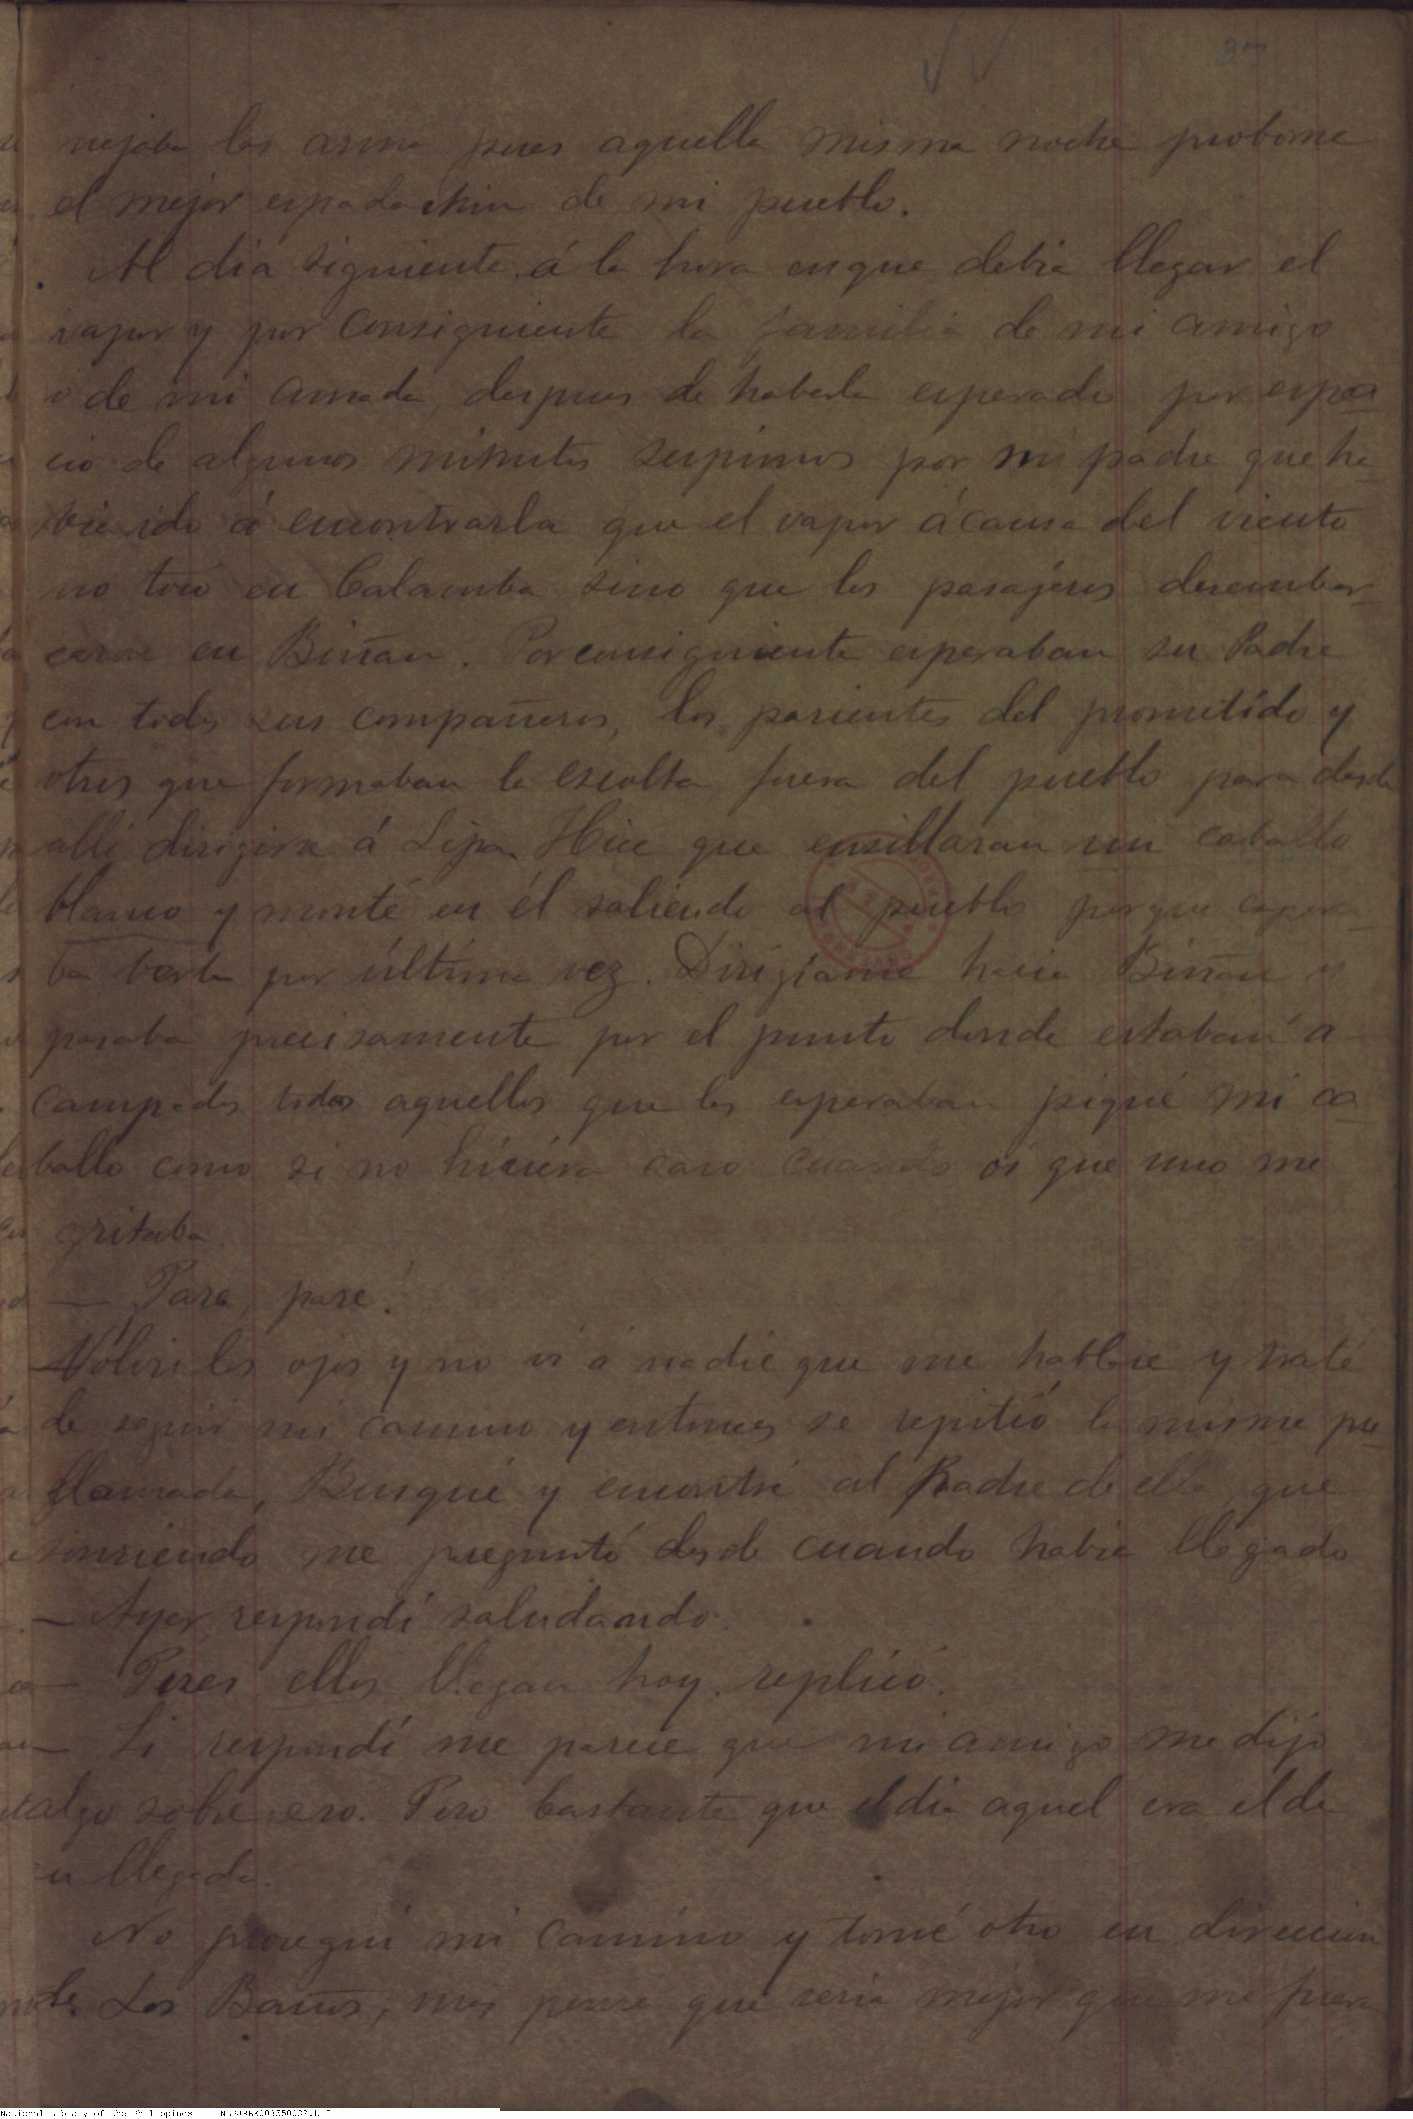 nejaba las arma pues aquella misma noche probome
el mejor espadachin de mi pueblo.
Al dia siguiente á la hora en que debia llegar el
vapor y por consiguiente la familia de mi amigo
ó de mi amada, despues de haberla esperado por espa-
cio de algunos minutos supimos por mi padre que ha-
bia ido á encontrarla que el vapor á causa del viento
no tocó en Calamba sino que los pasajeros desembar-
caron en Biñan. Por consiguiente esperaban su Padre
con todos sus compañeros, los parientes del prometido y
otros que formaban la escolta fuera del pueblo para desde
alli dirigirse á Lipa. Hice que ensillaran un caballo
blanco y monté en él saliendo al pueblo porque espera-
ba verla por última vez. Dirigíame hacia Biñan y
pasaba precisamente por el punto donde estaban a
campados todos aquellos que los esperaban piqué mi ca-
ballo como si no hiciera caso cuando oí que uno me
gritaba
— Para, pare!
Volví los ojos y no ví á nadie que me hablase y traté
de seguir mi camino y entonces se repitió la misma
llamada, Busqué y encontré al Padre de ella, que
sonriendo me preguntó desde cuando habia llegado
— Ayer, respondí saludando.
— Pues ellos llegan hoy, replicó.
— Si respondí me parece que mi amigo me dijo
algo sobre eso. Pero bastante que el dia aquel era el de
su llegada.
No proseguí mi camino y tomé otro en direccion
de Los Baños, mas pensé que seria mejor que me fuera